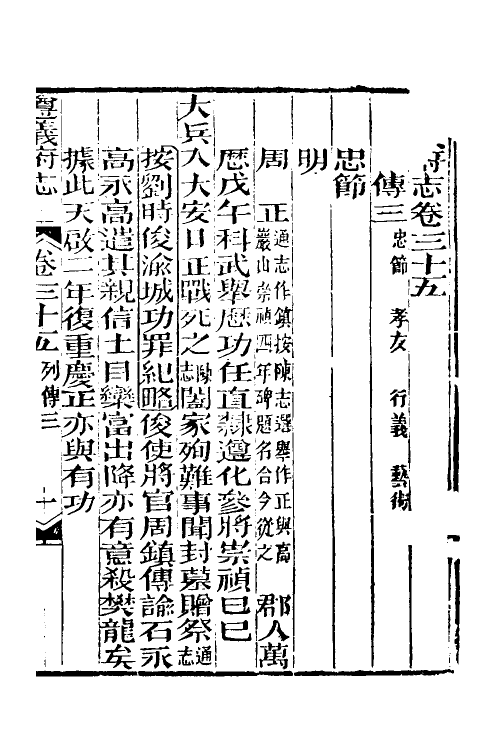 府志卷三十五
傳三 忠節 孝友 行義 藝術
忠節
明
周 正 通志作鎮按陳志選舉作正與高巖山崇禎四年碑題名合今從之 郡人萬
厯戊午科武舉厯功任直隸遵化參將崇禎巳巳
大兵入大安口正戰死之陳志闔家殉難事聞封墓贈祭通志
按劉時俊渝城功罪紀略俊使將官周鎮傳諭石永
高永高遣其親信土目欒富出降亦有意殺樊龍矣
據此天啟二年復重慶正亦與有功
遵義府志 卷三十五 列傳三 十一